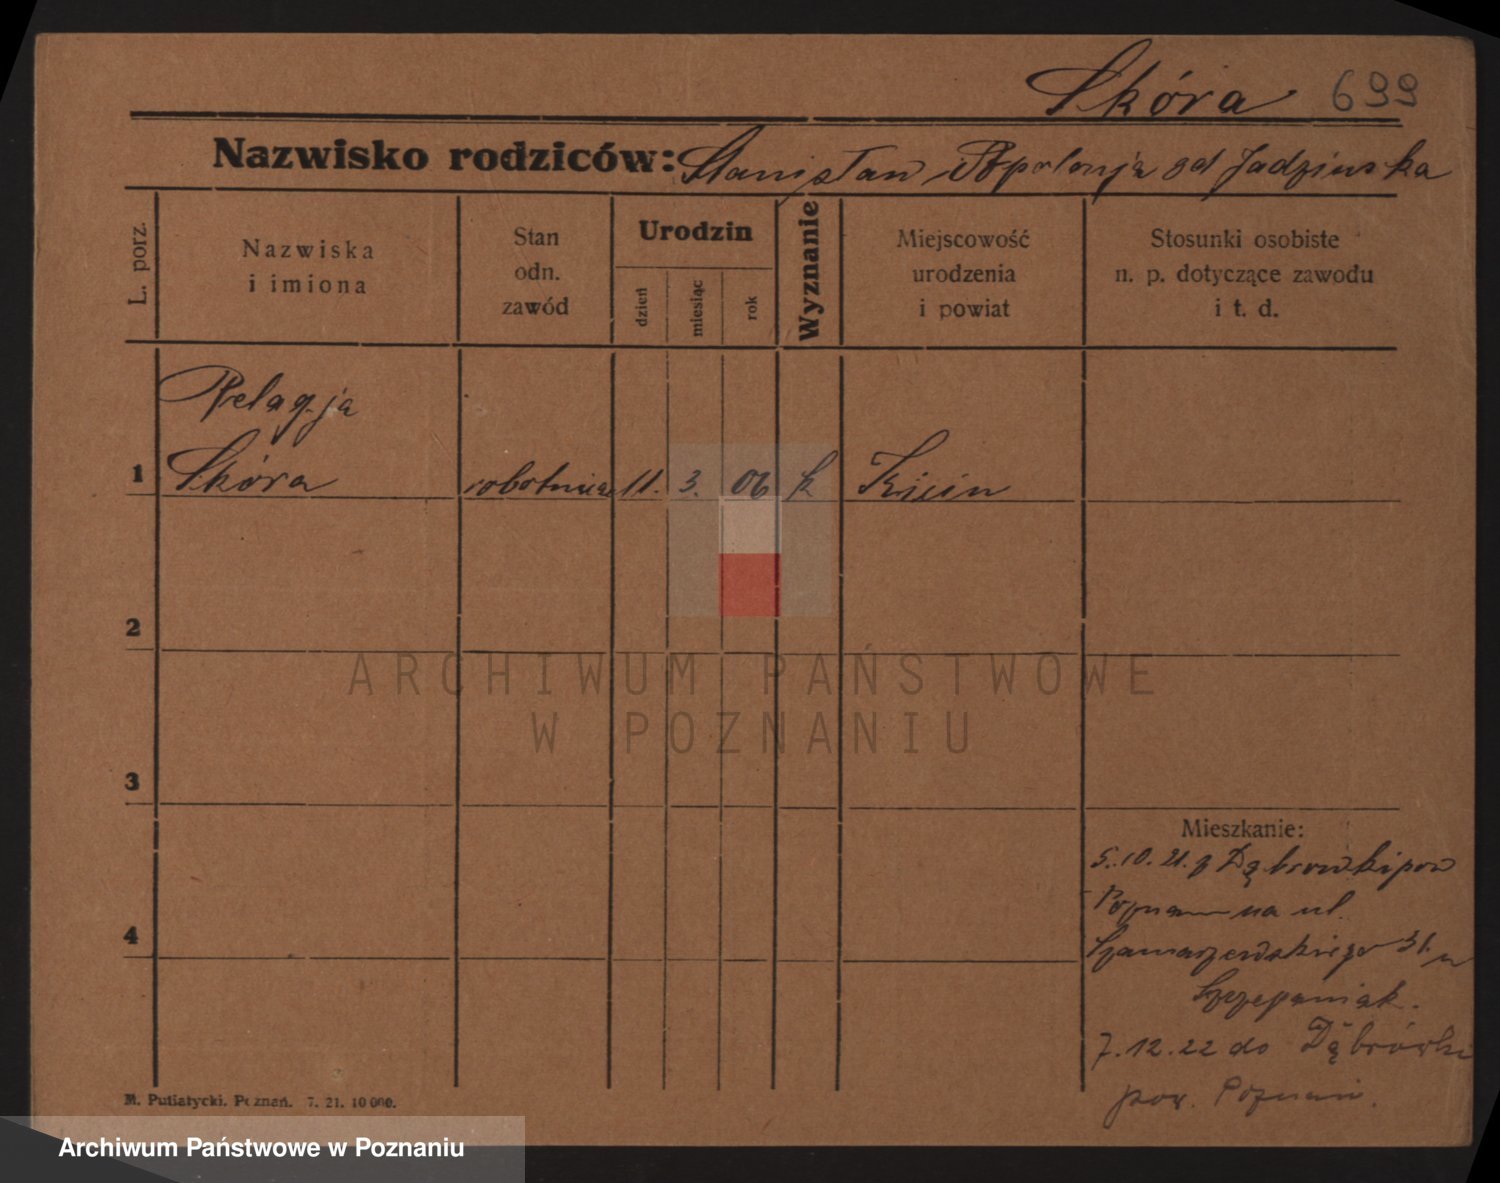 Skóra 699
Nazwisko rodziców: Stanisław Apolonja
L. porz.
Nazwiska
i imiona
Stan
odn.
zawód
Urodzin
dzień
miesiąc
rok
Wyznanie
Miejscowość
urodzenia
i powiat
Stosunki osobiste
n. p. dotyczące zawodu
i t. d.
Pelagja
1 Skóra robotnica 11. 3. 06 k Kicin
2
ARCHIWUM PAŃSTWOWE
W POZNANIU
3
Mieszkanie:
5.10.21. z Dąbrowki pow
Poznań na ul.
4
Szamarzewskiego 31. u
Szczepaniak.
7.12.22 do Dąbrówki
pow. Poznań.
M. Putiatycki. Poznań. 7. 21. 10 000.
Archiwum Państwowe w Poznaniu